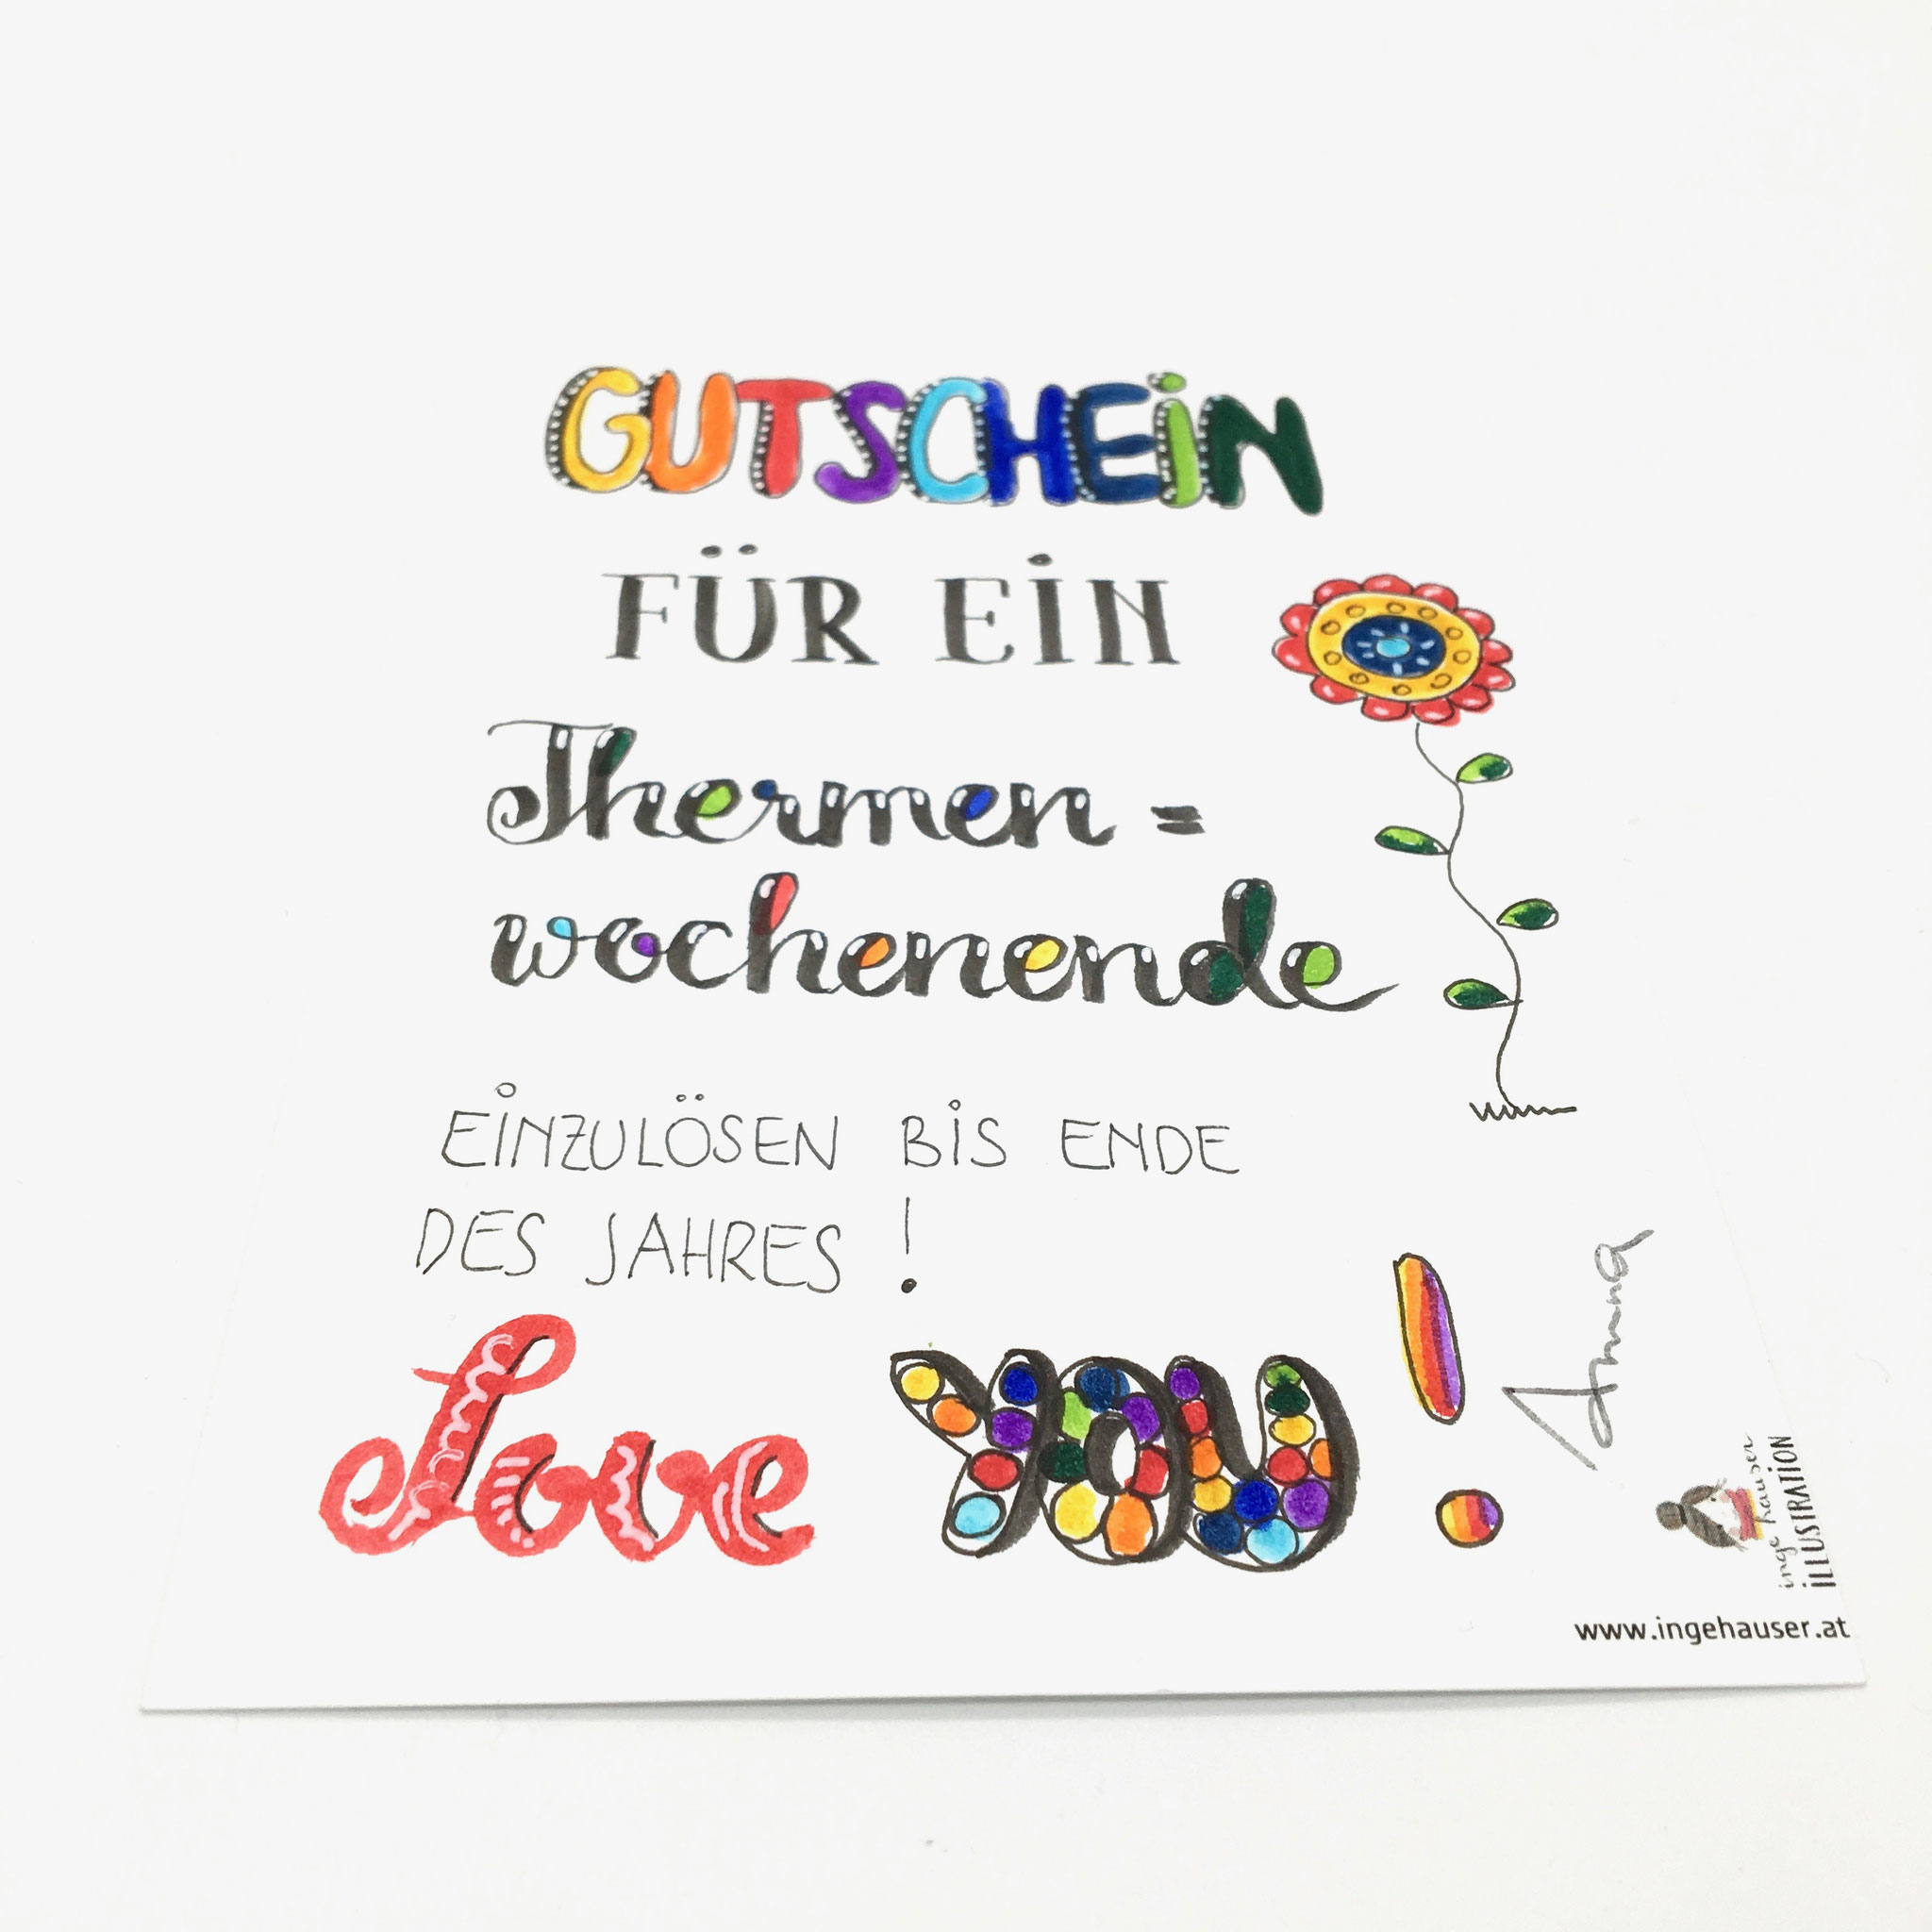 GUTSCHEiN
FÜR EiN
Thermen=
wochenende
EiNZULÖSEN BiS ENDE
DES JAHRES!
Love YOU!
Anna
inge hauser
iLLUSTRATiON
www.ingehauser.at